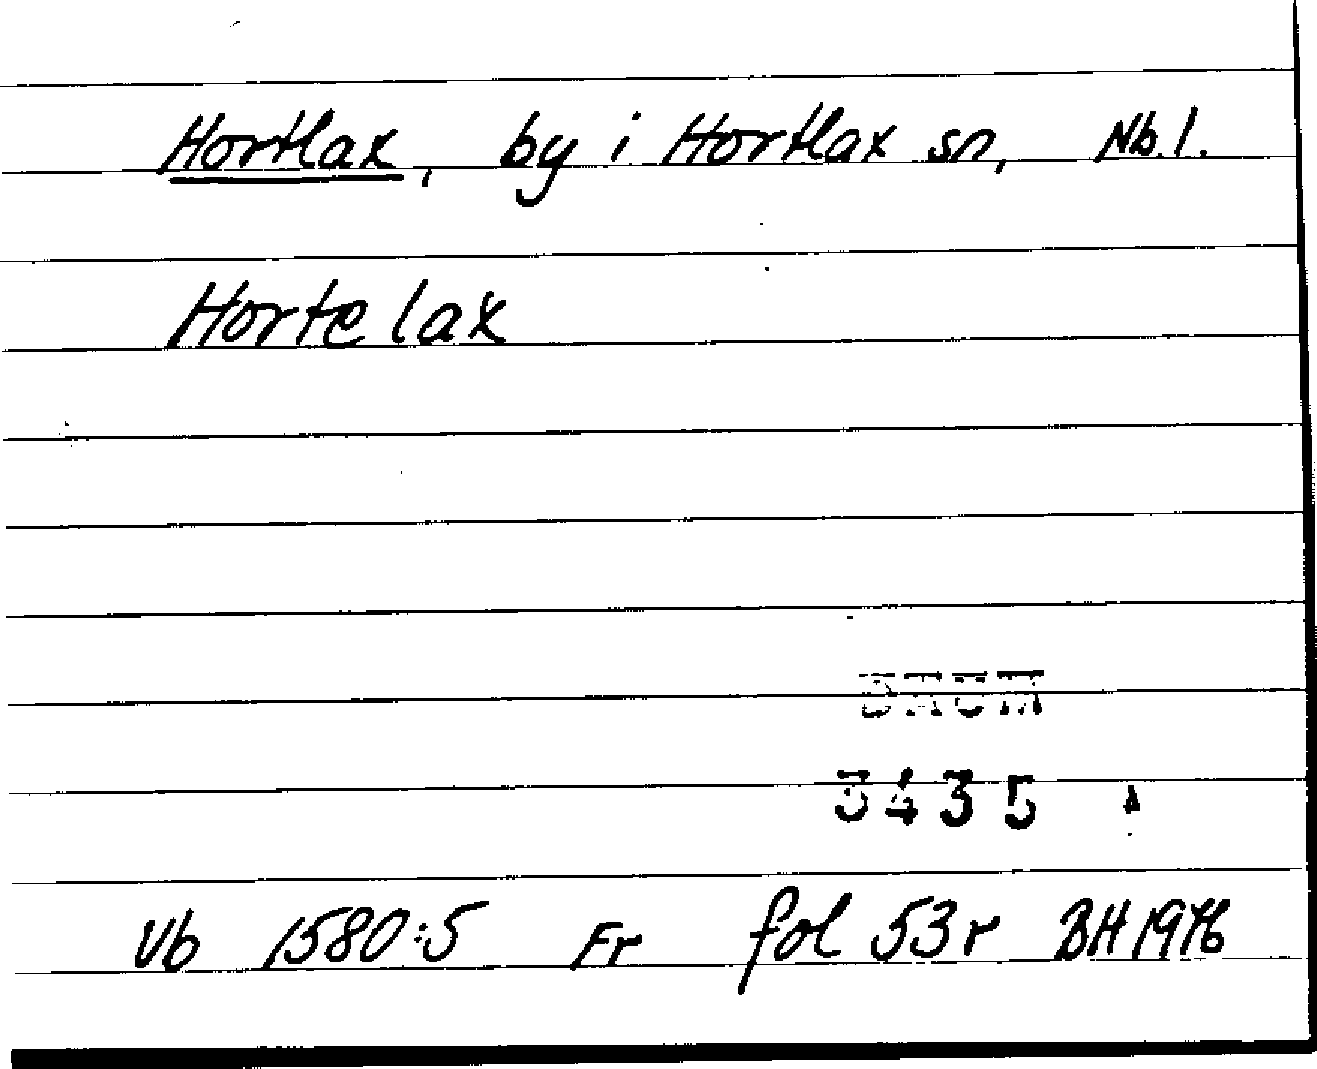 Hortlax, by i Hortlax sn, Nb.l.
Hortelax
DAUM
3435
Vb 1580:5 Fr fol 53r BH 1976